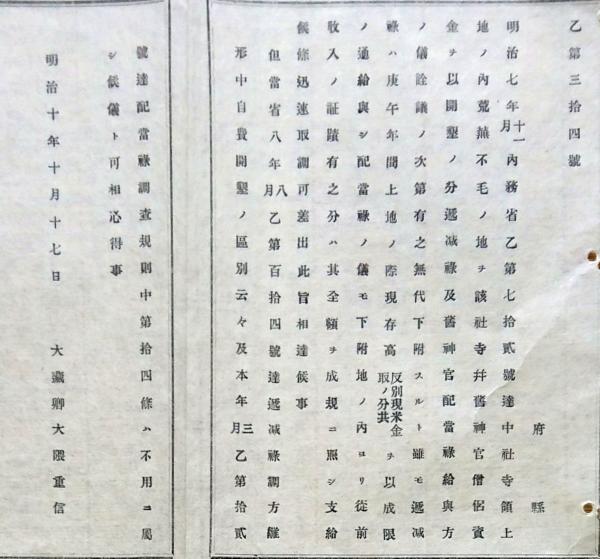 乙第三拾四號
府縣
明治七年十一月內務省乙第七拾貳號達中社寺領上
地ノ內荒蕪不毛ノ地ヲ該社寺幷舊神官僧侶資
金ヲ以開墾ノ分遞減祿及舊神官配當祿給與方
ノ儀詮議ノ次第有之無代下附スルト雖モ遞減
祿ハ庚午年間上地ノ際現存高反別現米金取ノ分共ヲ以成限
ノ通給與シ配當祿ノ儀モ下附地ノ內ヨリ從前
收入ノ証蹟有之分ハ其全額ヲ成規ニ照シ支給
候條迅速取調可差出此旨相達候事
但當省八年八月乙第百拾四號達遞減祿調方雛
形中自費開墾ノ區別云々及本年三月乙第拾貳
號達配當祿調查規則中第拾四條ハ不用ニ屬
シ候儀ト可相心得事
明治十年十月十七日
大藏卿大隈重信